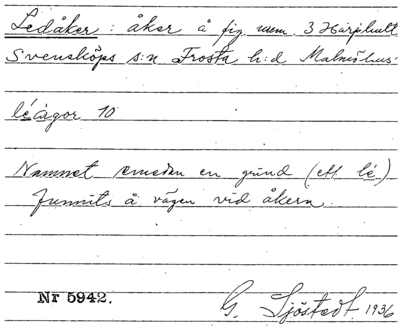 Ledåker : åker å fig. num. 3 Harphult
Svensköps s:n Frosta h:d Malmöhus.
léågor 10
Namnet emedan en grind (ett lé)
funnits å vägen vid åkern.
Nr 5942.
G. Sjöstedt. 1936